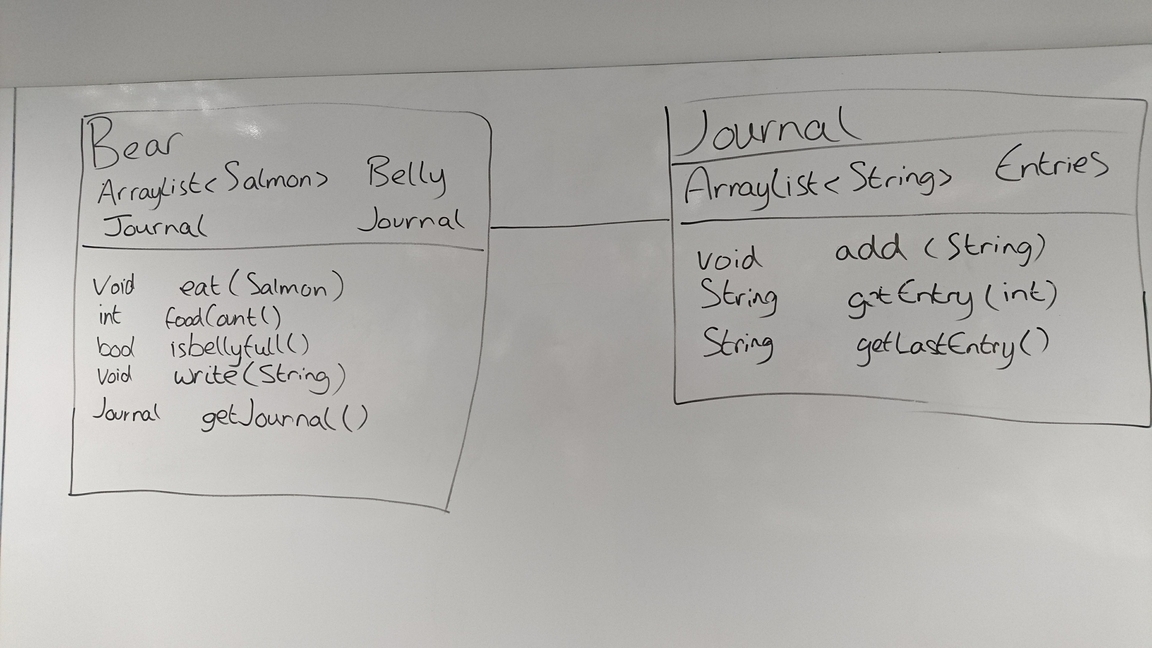 Bear
ArrayList<Salmon> Belly
Journal Journal
Void eat(Salmon)
int foodCount()
bool isbellyfull()
Void write(String)
Journal getJournal()
Journal
ArrayList<String> Entries
void add (String)
String getEntry(int)
String getLastEntry()